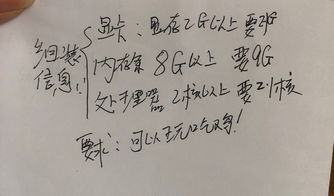 组装信息：
显卡：显存2G以上要24G
内存条 8G以上 要9G
处理器 2核以上 要24核
要求：可以玩吃鸡！